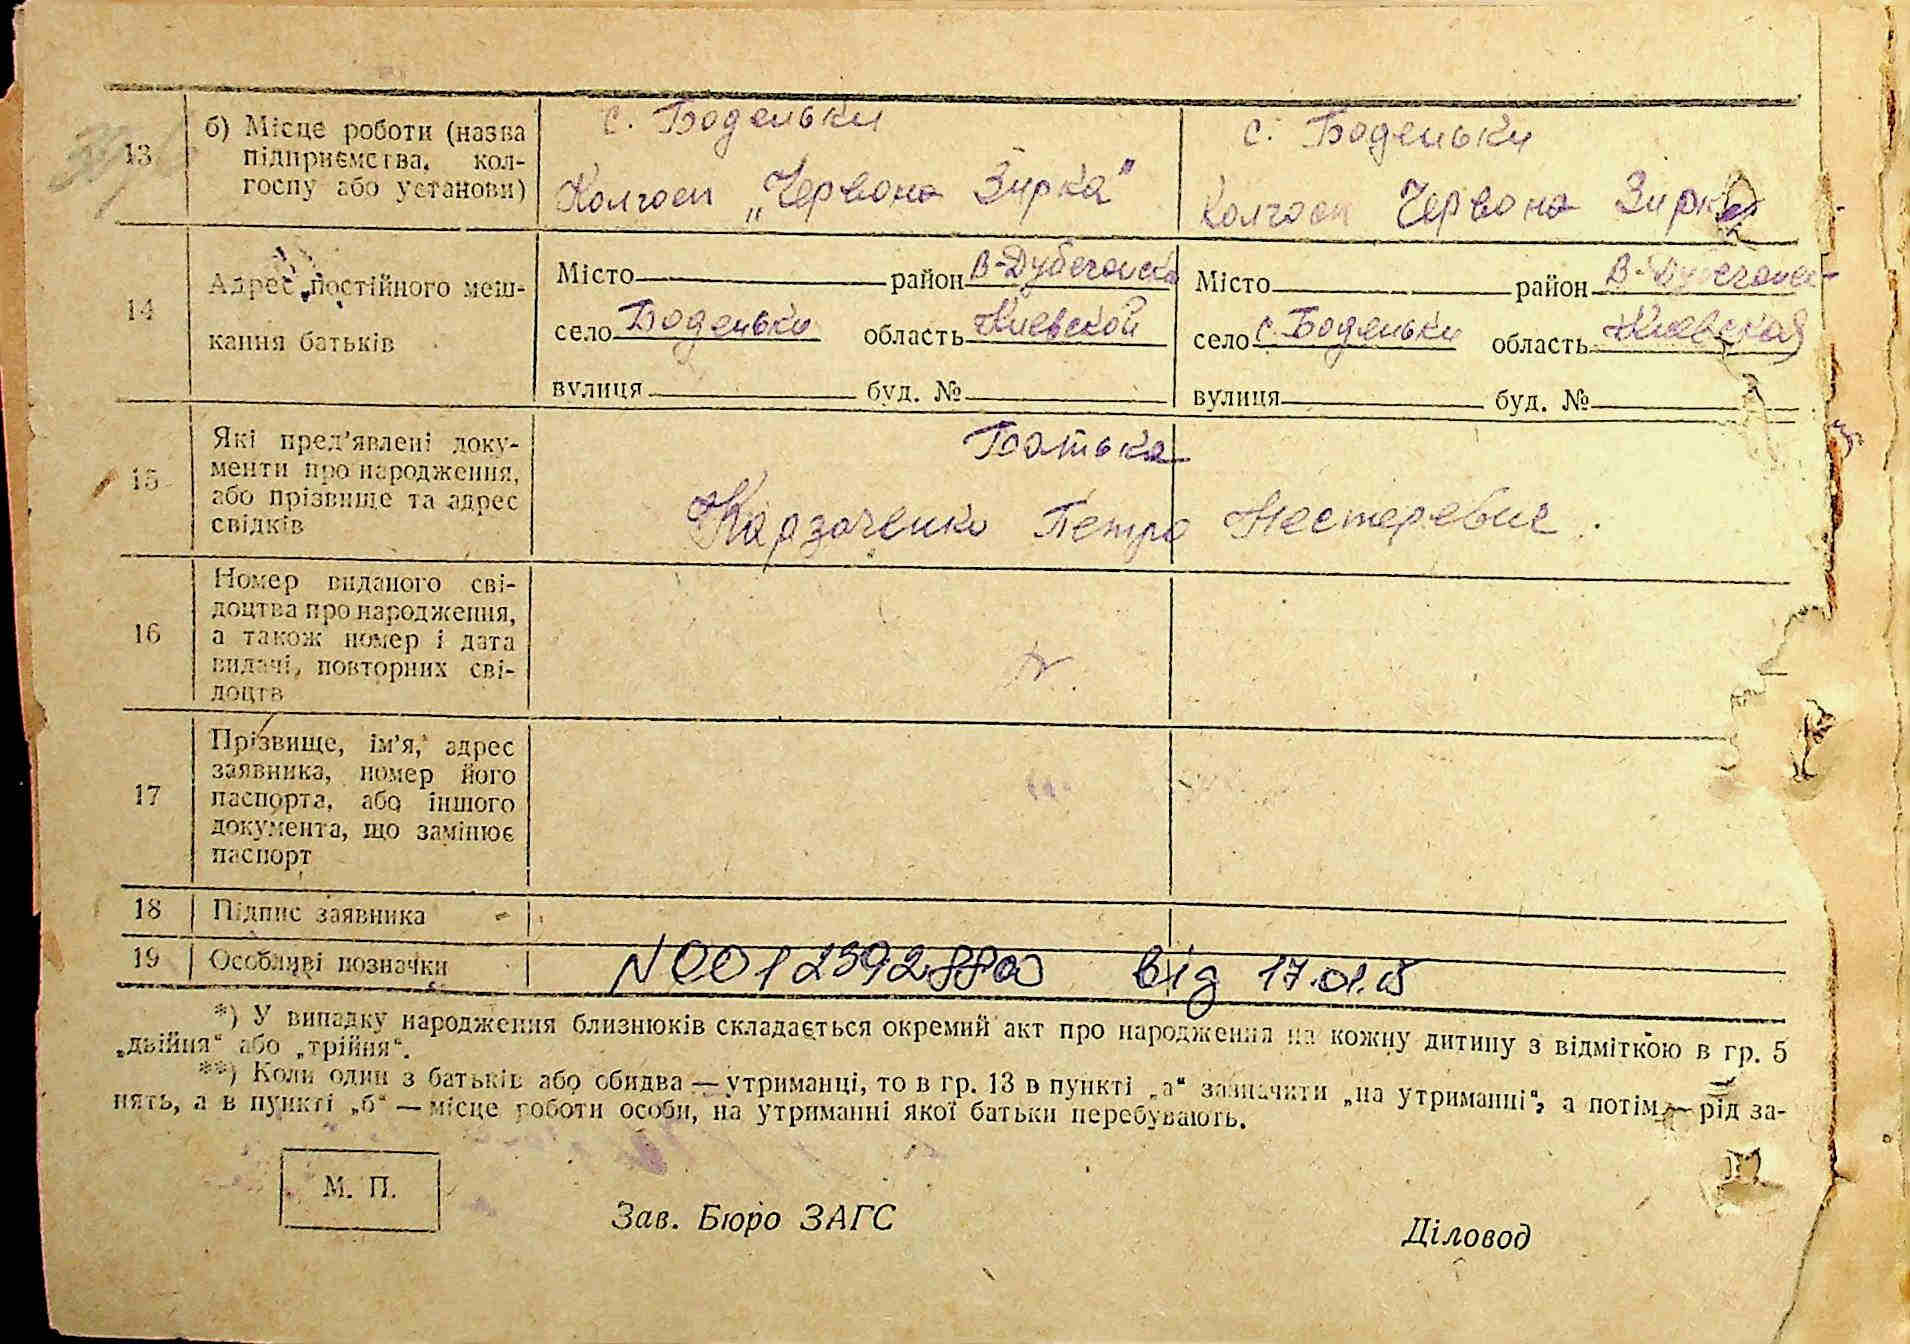 13
б) Місце роботи (назва
підприємства, кол-
госпу або установи)
с. Боденьки
Колгосп „Червона Зирка"
с. Боденьки
Колгосп Червона Зирка
14
Адрес постійного меш-
кання батьків
Місто район В-Дубечанско
село Боденьки область Киевской
вулиця буд. №
Місто район
село с. Боденьки область Киевской
вулиця буд. №
15
Які пред'явлені доку-
менти про народження,
або прізвище та адрес
свідків
Батька
Петро Нестеревич.
16
Номер виданого сві-
доцтва про народження,
а також номер і дата
видачі, повторних сві-
доцтв
17
Прізвище, ім'я, адрес
заявника, номер його
паспорта, або іншого
документа, що замінює
паспорт
18
Підпис заявника
19
Особливі позначки
від 17.01.15
*) У випадку народження близнюків складається окремий акт про народження на кожну дитину з відміткою в гр. 5
„двійня“ або „трійня“.
**) Коли один з батьків або обидва — утриманці, то в гр. 13 в пункті „а“ зазначити „на утриманні“, а потім — рід за-
нять, а в пункті „б“ — місце роботи особи, на утриманні якої батьки перебувають.
М. П.
Зав. Бюро ЗАГС
Діловод